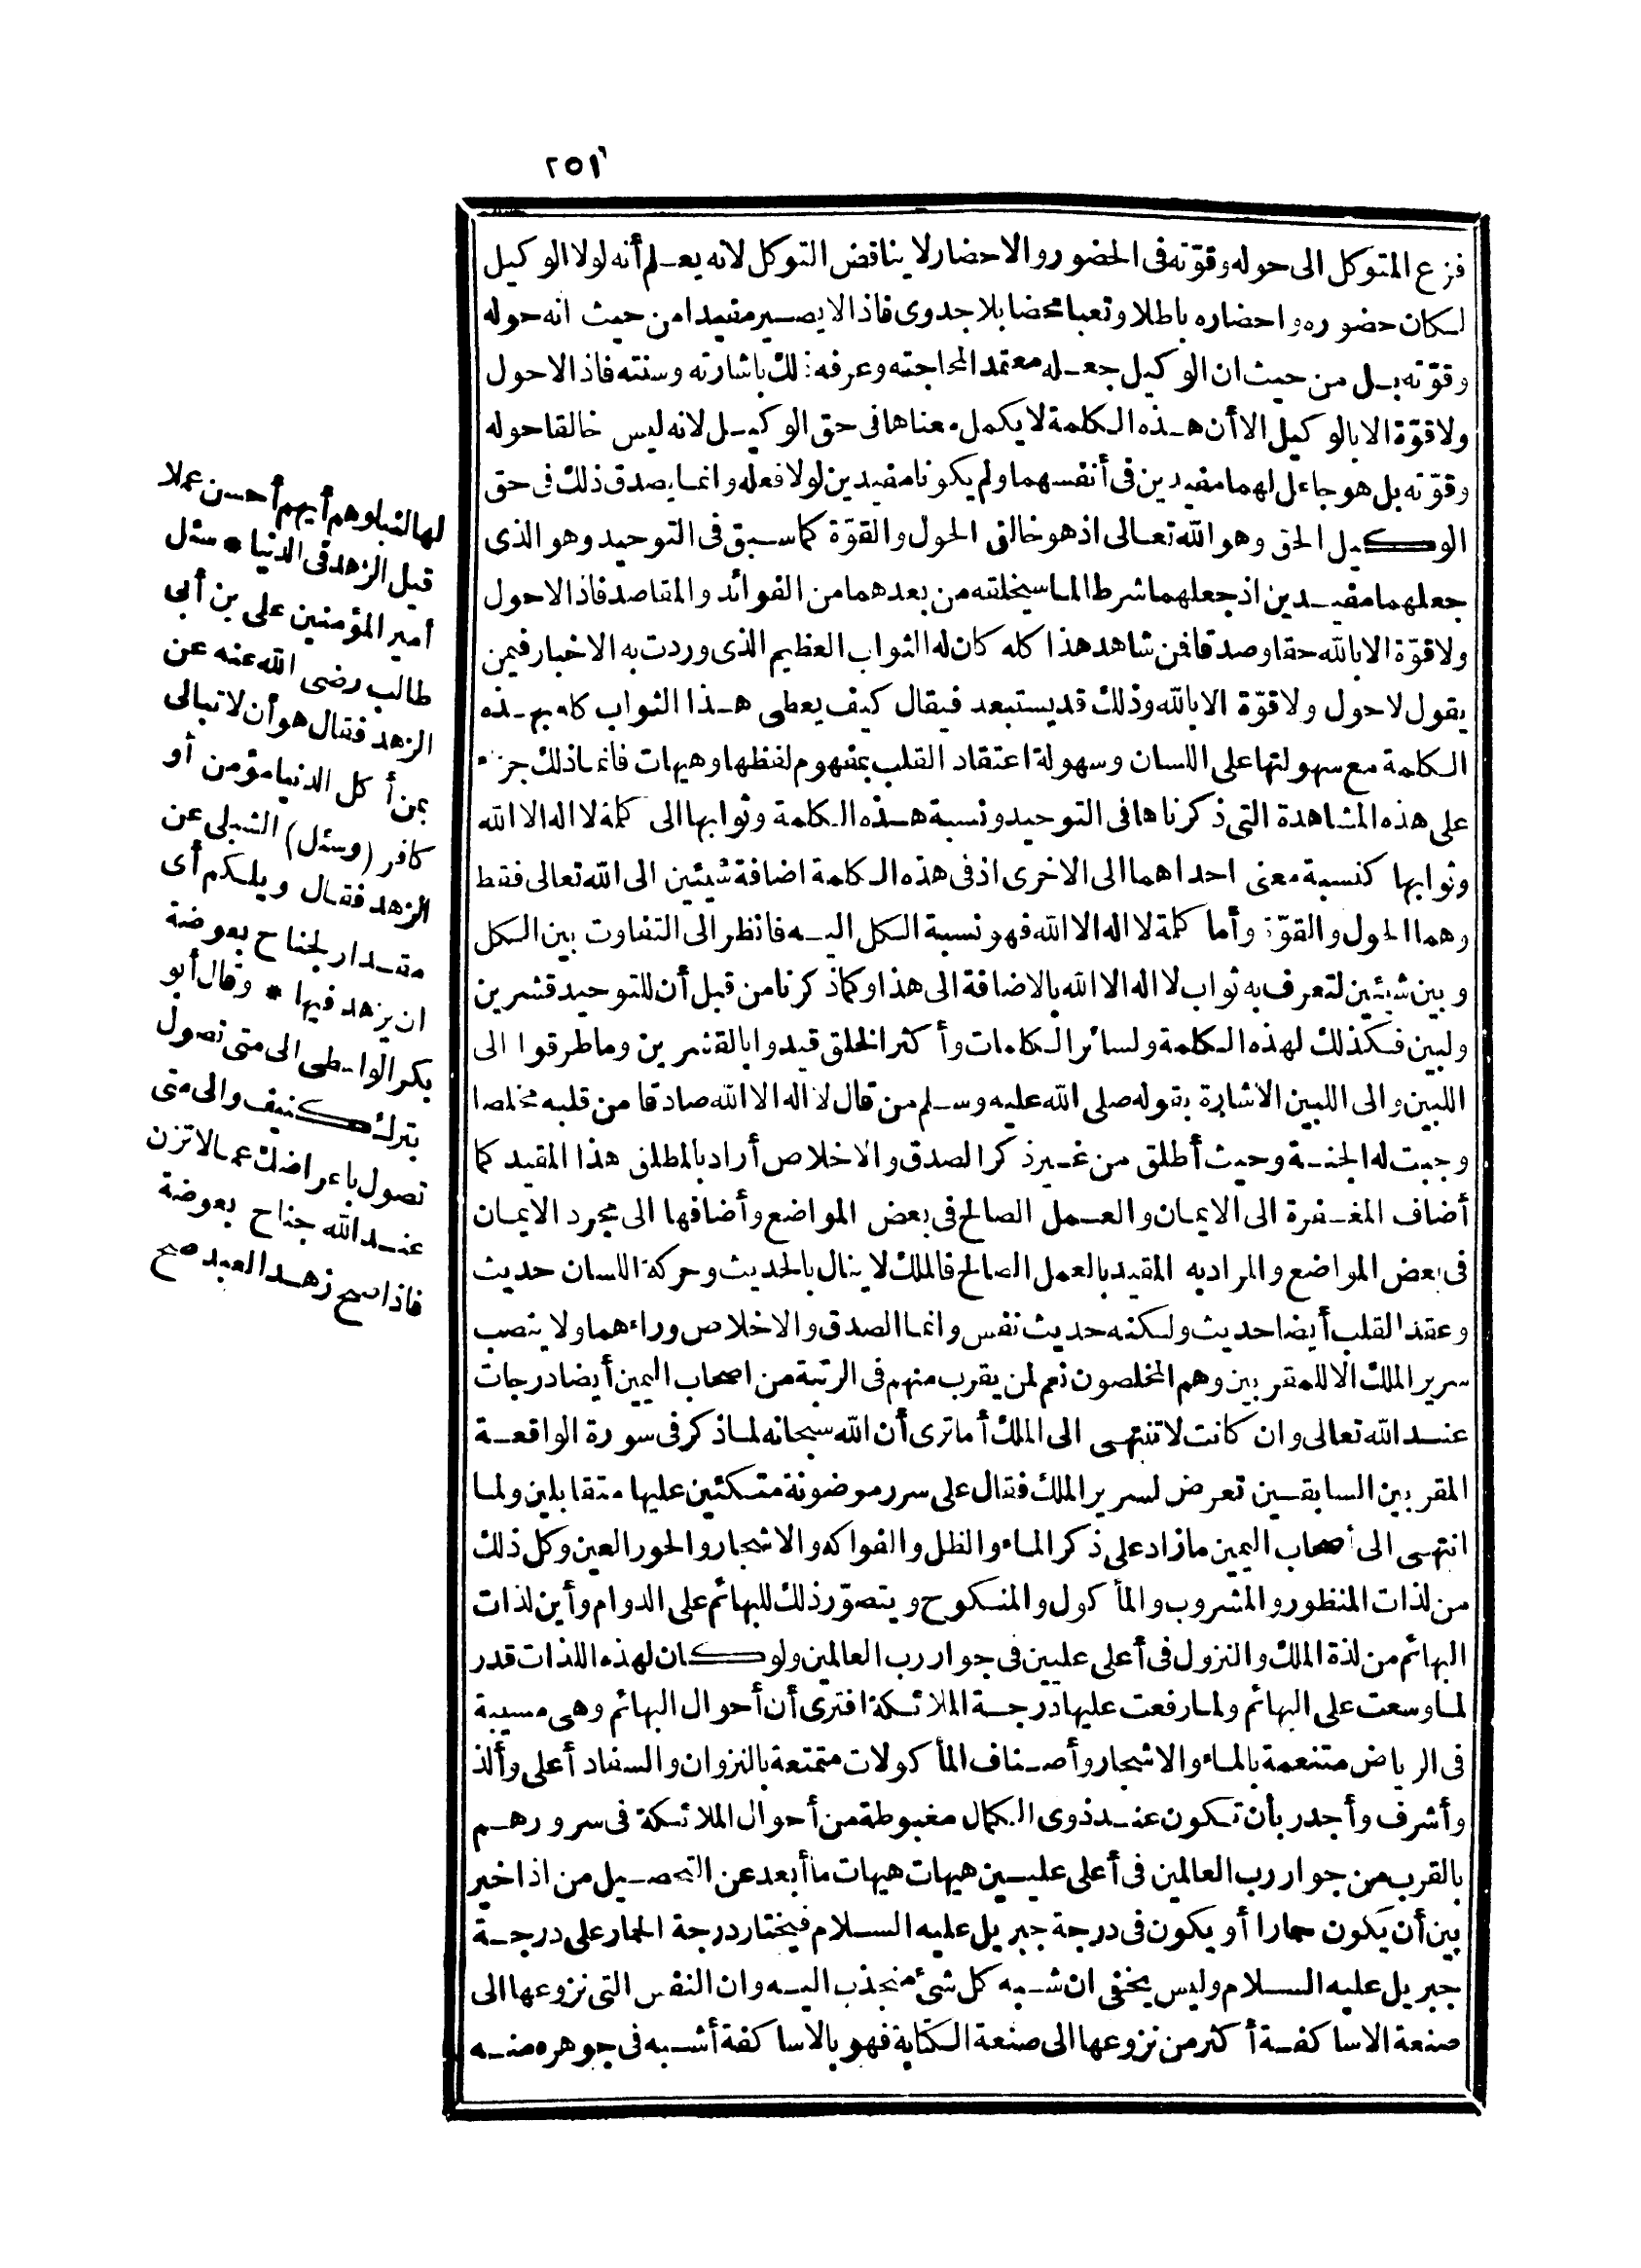 ٢٥١
فزع المتوكل الى حوله وقوّته فى الحضور والاحضار لا يناقض التوكل لانه يعلم أنه لولا الوكيل
لكان حضوره واحضاره باطلا وتعبا محضا بلا جدوى فاذا لا يصير مفيدا من حيث انه حوله
وقوّته بل من حيث ان الوكيل جعله معتمدا لمحاجته وعرفه ذلك باشارته وسنته فاذا لاحول
ولا قوّة الا بالوكيل الا أن هذه الكلمة لا يكمل معناها فى حق الوكيل لانه ليس خالقا حوله
وقوّته بل هو جاعل لهما مفيدين فى أنفسهما ولم يكونا مفيدين لولا فعله وانما يصدق ذلك فى حق
الوكيل الحق وهو الله تعالى اذ هو خالق الحول والقوّة كما سبق فى التوحيد وهو الذى
جعلهما مفيدين اذ جعلهما شرطا لما سيخلقه من بعدهما من الفوائد والمقاصد فاذا لاحول
ولا قوّة الا بالله حقا وصدقا فمن شاهد هذا كله كان له الثواب العظيم الذى وردت به الاخبار فيمن
يقول لاحول ولا قوّة الا بالله وذلك قد يستبعد فيقال كيف يعطى هذا الثواب كله بهذه
الكلمة مع سهولتها على اللسان وسهولة اعتقاد القلب بمفهوم لفظها وهيهات فانما ذلك جزاء
على هذه المشاهدة التى ذكرناها فى التوحيد ونسبة هذه الكلمة وثوابها الى كلمة لا اله الا الله
وثوابها كنسبة معنى احداهما الى الاخرى اذ فى هذه الكلمة اضافة شيئين الى الله تعالى فقط
وهما الحول والقوّة وأما كلمة لا اله الا الله فهو نسبة الكل اليه فانظر الى التفاوت بين الكل
وبين شيئين لتعرف به ثواب لا اله الا الله بالاضافة الى هذا وكما ذكرنا من قبل أن للتوحيد قشرين
ولبين فكذلك لهذه الكلمة ولسائر الكلمات وأكثر الخلق قيدوا بالقشرين وما طرقوا الى
اللبين والى اللبين الاشارة بقوله صلى الله عليه وسلم من قال لا اله الا الله صادقا من قلبه مخلصا
وجبت له الجنة وحيث أطلق من غير ذكر الصدق والاخلاص أراد بالمطلق هذا المقيد كما
أضاف المغفرة الى الايمان والعمل الصالح فى بعض المواضع وأضافها الى مجرد الايمان
فى بعض المواضع والمراد به المقيد بالعمل الصالح فالملك لا ينال بالحديث وحركة اللسان حديث
وعقد القلب أيضا حديث ولكنه حديث نفس وانما الصدق والاخلاص وراءهما ولا ينصب
سرير الملك الا للمقربين وهم المخلصون نعم لمن يقرب منهم فى الرتبة من أصحاب اليمين أيضا درجات
عند الله تعالى وان كانت لا تنتهى الى الملك أما ترى أن الله سبحانه لما ذكر فى سورة الواقعة
المقربين السابقين تعرض لسرير الملك فقال على سرر موضونة متكئين عليها متقابلين ولما
انتهى الى أصحاب اليمين ما زاد على ذكر الماء والظل والفواكه والاشجار والحور العين وكل ذلك
من لذات المنظور والمشروب والمأكول والمنكوح ويتصوّر ذلك للبهائم على الدوام وأين لذات
البهائم من لذة الملك والنزول فى أعلى عليين فى جوار رب العالمين ولو كان لهذه اللذات قدر
لما وسعت على البهائم ولما رفعت عليها درجة الملائكة افترى أن أحوال البهائم وهى مسيبة
فى الرياض متنعمة بالماء والاشجار وأصناف المأكولات متمتعة بالنزوان والسفاد أعلى وألذ
وأشرف وأجدر بأن تكون عند ذوى الكمال مغبوطة من أحوال الملائكة فى سرورهم
بالقرب من جوار رب العالمين فى أعلى عليين هيهات هيهات ما أبعد عن التحصيل من اذا خير
بين أن يكون حمارا أو يكون فى درجة جبريل عليه السلام فيختار درجة الحمار على درجة
جبريل عليه السلام وليس يخفى ان شبه كل شئ منجذب اليه وان النفس التى نزوعها الى
صنعة الاساكفة أكثر من نزوعها الى صنعة الكتابة فهو بالاساكفة أشبه فى جوهره منه
لها لنبلوهم أيهم أحسن عملا
قيل الزهد فى الدنيا * سئل
أمير المؤمنين على بن أبى
طالب رضى الله عنه عن
الزهد فقال هو أن لا تبالى
بمن أكل الدنيا مؤمن أو
كافر (وسئل) الشبلى عن
الزهد فقال ويلكم أى
مقدار لجناح بعوضة
ان يزهد فيها * وقال أبو
بكر الواسطى الى متى تصول
بترك كنيف والى متى
تصول باعراضك عما لا تزن
عند الله جناح بعوضة
فاذا صح زهد العبد صح